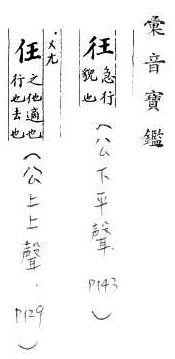 彙音寶鑑
彺 急行貌也
(公下平聲 P143)
ㄨㄤ
往 之他適也行也去也
(公上上聲. P129)